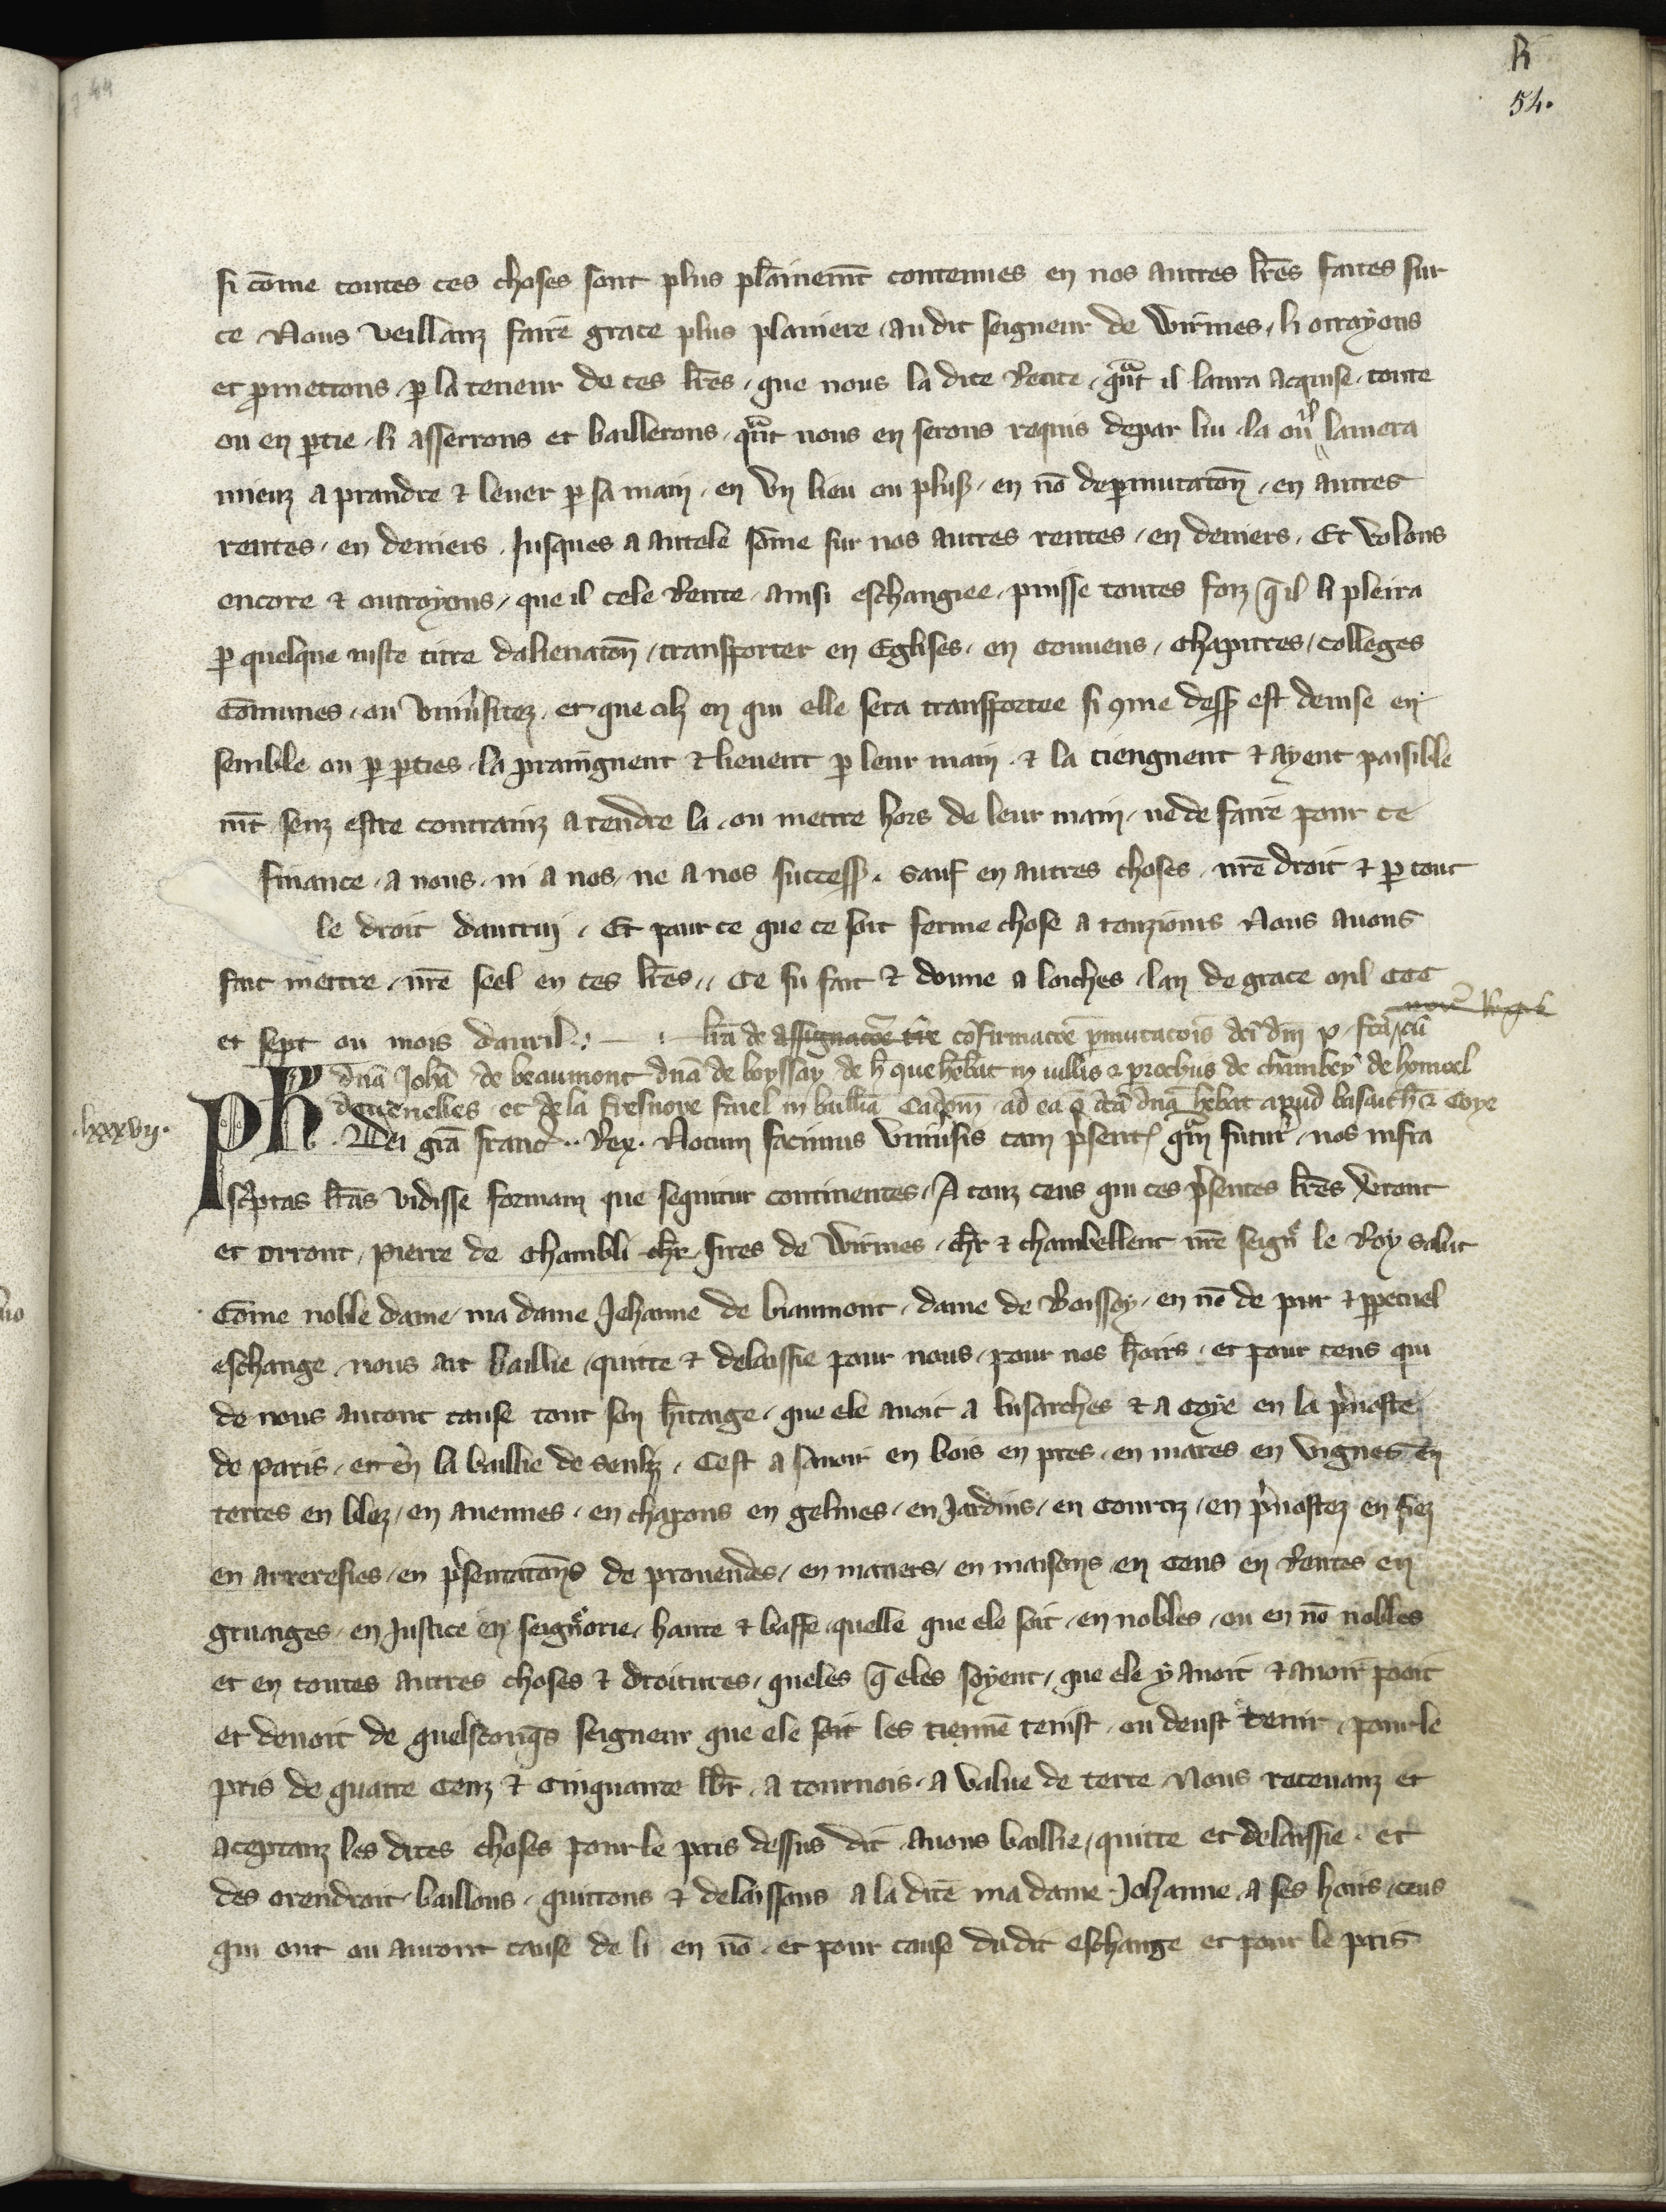 R
54.
si cōme toutes ces choses sont plus plainemt contenues en nos autres lres faites sur
ce Nous veillanz faire grace plus planiere . au dit seigneur de Wirmes . li otroyons
et pmettons . p la teneur de ces lres . que nous la dite Rente . qnt il laura acquise . toute
ou en ptie . li asserrons et baillerons . qnt nous en serons requis depar lui . la ou il lamera
mieuz a prandre & lever p sa main . en un lieu ou plus . en nō de pmutaton . en autres
rentes . en deniers . Jusques a autele sōme sur nos autres rentes . en deniers . Et volons
encore & outroyons . que il cele Rente . ainsi eschangiee . puisse toutes foiz q il li pleira
p quelque iuste titre dalienaton . transporter en Eglises . en convens . chapitres . colleges
Cōmunes . ou Univsitez . et que cilz en qui elle sera transportee si cme dess est devise en
semble ou p pties . la praingnent & lievent p leur main . & la tiengnent & ayent paisible
mt senz estre contrainz a vendre la . ou mettre hors de leur main . ne de faire pour ce
finance . a nous . ni a nos . ne a nos success . Sauf en autres choses . nre droit & p tout
le droit dautrui . Et pour ce que ce soit ferme chose a touziours Nous avons
fait mettre . nre seel en ces lres . Ce fu fait & donne a loiches . lan de grace mil CCC
et sept ou mois davril . lra de assignacōe tre cōfirmacōe pmutacois dci dni P . fca cū
dna Joha de beaumont dna de boyssay de h que hebat in villis & prochiis de chambey de homoel
de guenelles . et de la fresnoye fauel in baillia Cadom . ad ea q dca dna hebat apud lusarch & Coye
.lxxxvij.
Ph . Dei gra franc . Rex . Notum facimus Univsis tam psent qm futur . nos infra
scptas lras vidisse formam que sequitur continentes . A touz ceus qui ces psentes lres vront
et orront . Pierre de Chambli chr . sires de Wirmes . chr & chambellent nre seign le Roy salut
Cōme noble dame . ma dame Jehanne de biaumont . dame de Boissay . en nō de pur & ppetuel
eschange . nous ait baillie . quitte & delaissie pour nous . pour nos hoirs . et pour ceus qui
de nous auront cause tout son hitaige . que ele avoit a lusarches & a Coye en la pvoste
de Paris . et en la baillie de Senliz . Cest a savoir en bois en pres . en mares en vignes en
terres en blez . en avennes . en chapons en gelines . en Jardins . en Courtiz . en pvostez en fiez
en arrerefies . en psentatons de provendes . en maners . en maisons en Cens en Rentes en
granges . en Justice en seignorie . haute & basse . quelle que ele soit . en nobles . ou en nō nobles
et en toutes autres choses & droitures . queles q eles soyent . que ele y avoit & avoir pooit
et devoit de quelsconqs seigneur que ele les tienne tenist . ou deust tenir . pour le
pris de quatre Cenz & Cinquante lbr . a tournois . a value de terre Nous recevanz et
aceptanz les dites choses pour le pris dessus dit avons baillie . quitte et delaissie . et
des orendroit . baillons . quittons & delaissons a la dite ma dame Jehanne . a ses hoirs . ceus
qui ont ou auront cause de li en nō . et pour cause dudit eschange et pour le pris